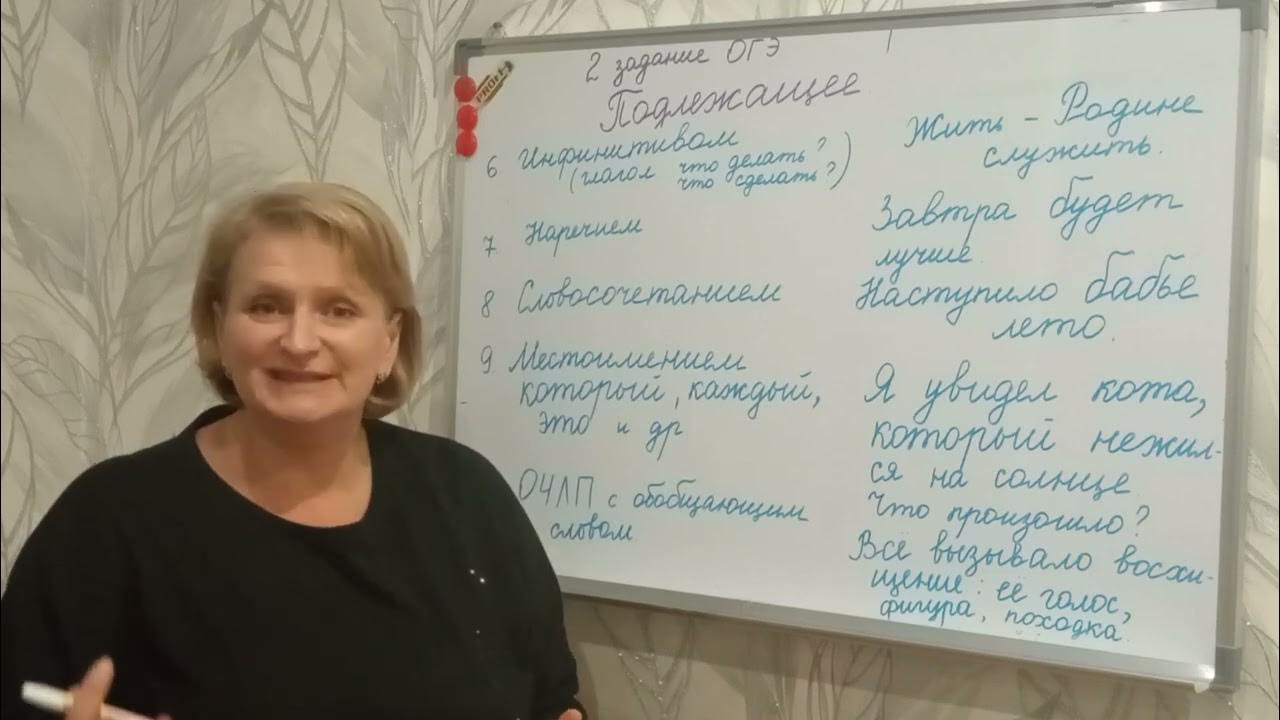 2 задание ОГЭ
Подлежащее
6 Инфинитивом
(глагол что делать?
что сделать?)
Жить – Родине
служить.
7 Наречием
Завтра будет
лучше.
8 Словосочетанием
Наступило бабье
лето.
9 Местоимением
который, каждый,
это и др
Я увидел кота,
который нежил-
ся на солнце.
Что произошло?
ОЧЛП с обобщающим
словом
Всё вызывало восхи-
щение: её голос,
фигура, походка.
PROFF